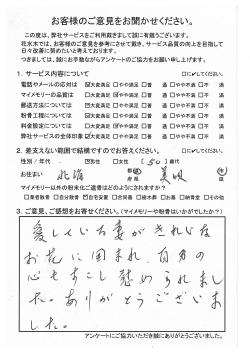 お客様のご意見をお聞かせください。
この度は、弊社サービスをご利用頂きまして誠に有難うございます。
花水木では、お客様のご意見を参考にさせて戴き、サービス品質の向上を目指して
日々改善に努めたいと考えております。
つきましては、誠にお手数ながらアンケートのご協力をお願い申し上げます。
1. サービス内容について □に✓してください。
電話やメールの応対は ☑大変満足 □やや満足 □普 通 □やや不満 □不 満
マイメモリーの品質は ☑大変満足 □やや満足 □普 通 □やや不満 □不 満
郵送方法については □やや満足 □普 通 □やや不満 □不 満
粉骨工程について □やや満足 □普 通 □やや不満 □不 満
料金設定については □普 通 □やや不満 □不 満
弊社サービスの全体印象 □やや満足 □普 通 □やや不満 □不 満
2. 差支えない範囲で結構ですのでお答えください。 □に✓してください。
性別/年代 ☑男性 □女性 〔50〕歳代
お住まい 北海 都道府県 美唄 市
マイメモリー以外の粉末化ご遺骨はどのようにされますか?
3. ご意見、ご感想をお寄せください。(マイメモリーや粉骨はいかがでしたか?)
愛しくい妻がきれいな
お花に囲まれ、自分の
心もすこし慰められまし
た。ありがとうございま
した。
アンケートにご協力いただき誠にありがとうございました。